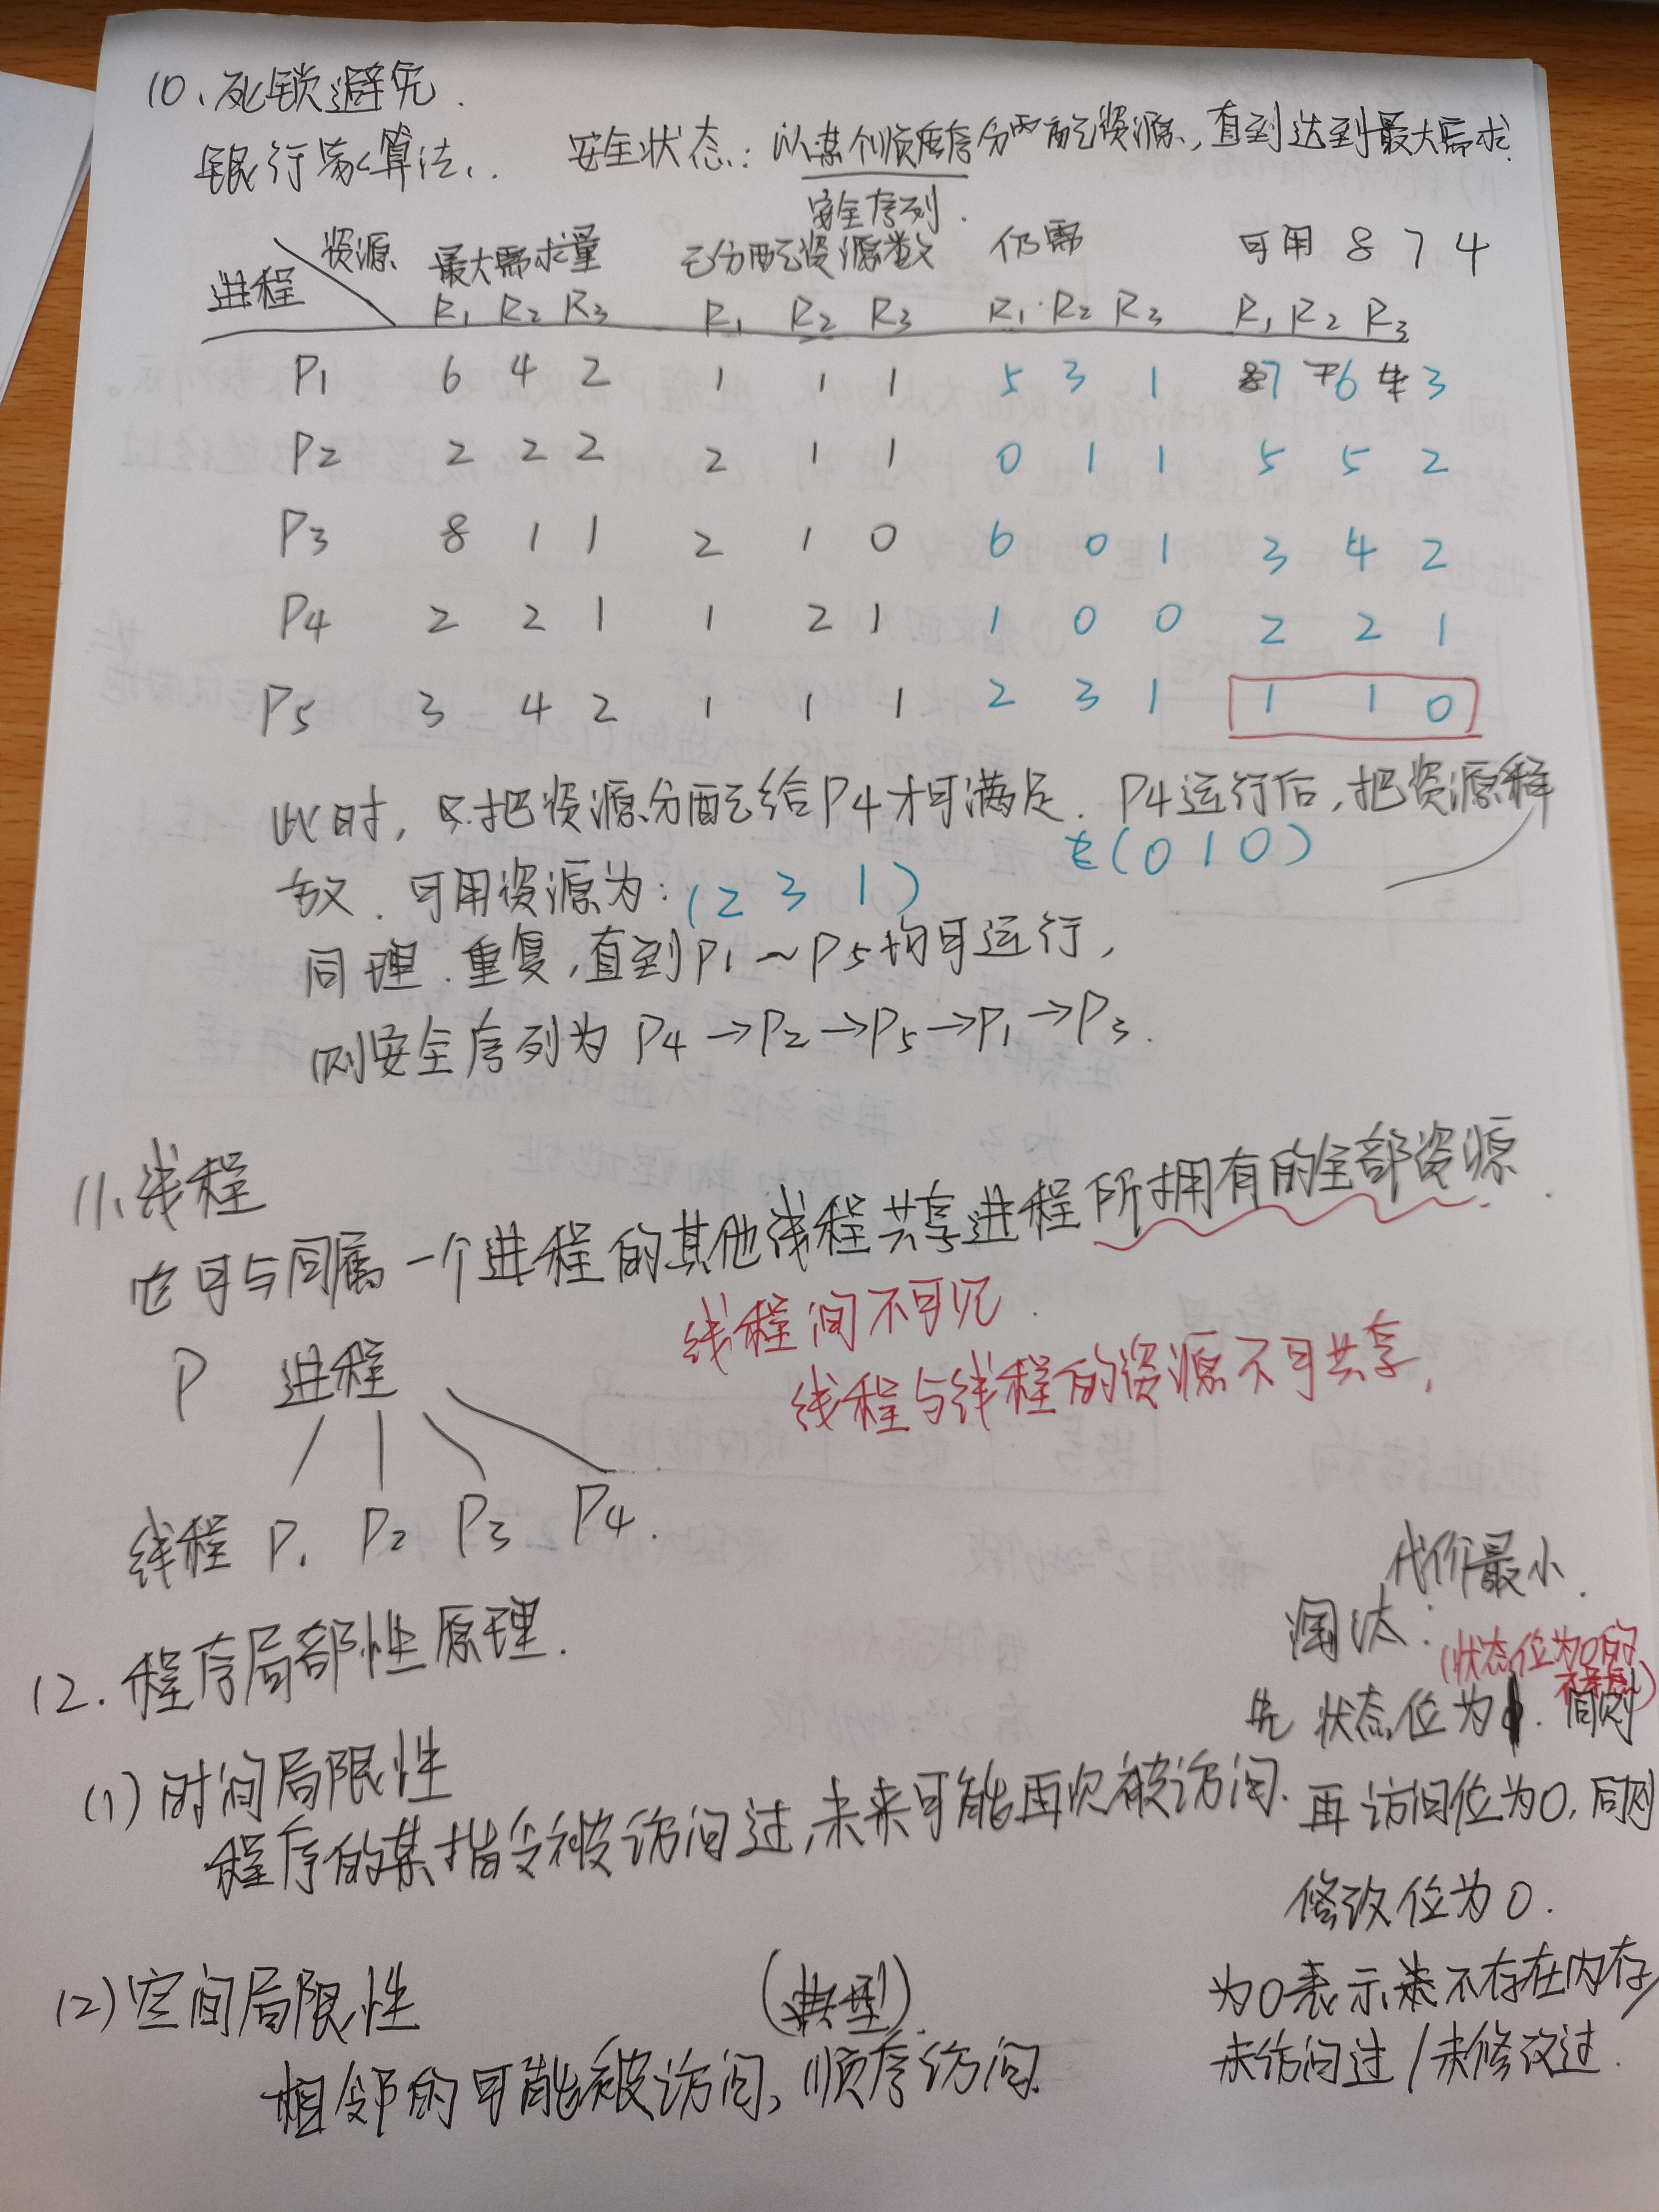 10、死锁避免.
银行家算法. 安全状态: 以某个顺序分配资源, 直到达到最大需求.
安全序列.
资源 最大需求量 已分配资源数 仍需 可用 8 7 4
进程 R1 R2 R3 R1 R2 R3 R1 R2 R3 R1 R2 R3
P1 6 4 2 1 1 1 5 3 1 7 6 3
P2 2 2 2 2 1 1 0 1 1 5 5 2
P3 8 1 1 2 1 0 6 0 1 3 4 2
P4 2 2 1 1 2 1 1 0 0 2 2 1
P5 3 4 2 1 1 1 2 3 1 1 1 0
此时, 只把资源分配给P4才可满足. P4运行后, 把资源释
(0 1 0)
放. 可用资源为: (2 3 1)
同理. 重复, 直到P1~P5均可运行,
则安全序列为 P4→P2→P5→P1→P3.
11、线程
它可与同属一个进程的其他线程共享进程所拥有的全部资源.
线程间不可见.
线程与线程的资源不可共享,
P 进程
线程 P1 P2 P3 P4.
12. 程序局部性原理.
代价最小.
淘汰:
(状态位为0的
不考虑)
先 状态位为1. 同则
(1) 时间局限性
程序的某指令被访问过, 未来可能再次被访问.
再 访问位为0, 同则
修改位为0.
(2) 空间局限性 (典型)
相邻的可能被访问, 顺序访问.
为0表示不存在内存/
未访问过/未修改过.